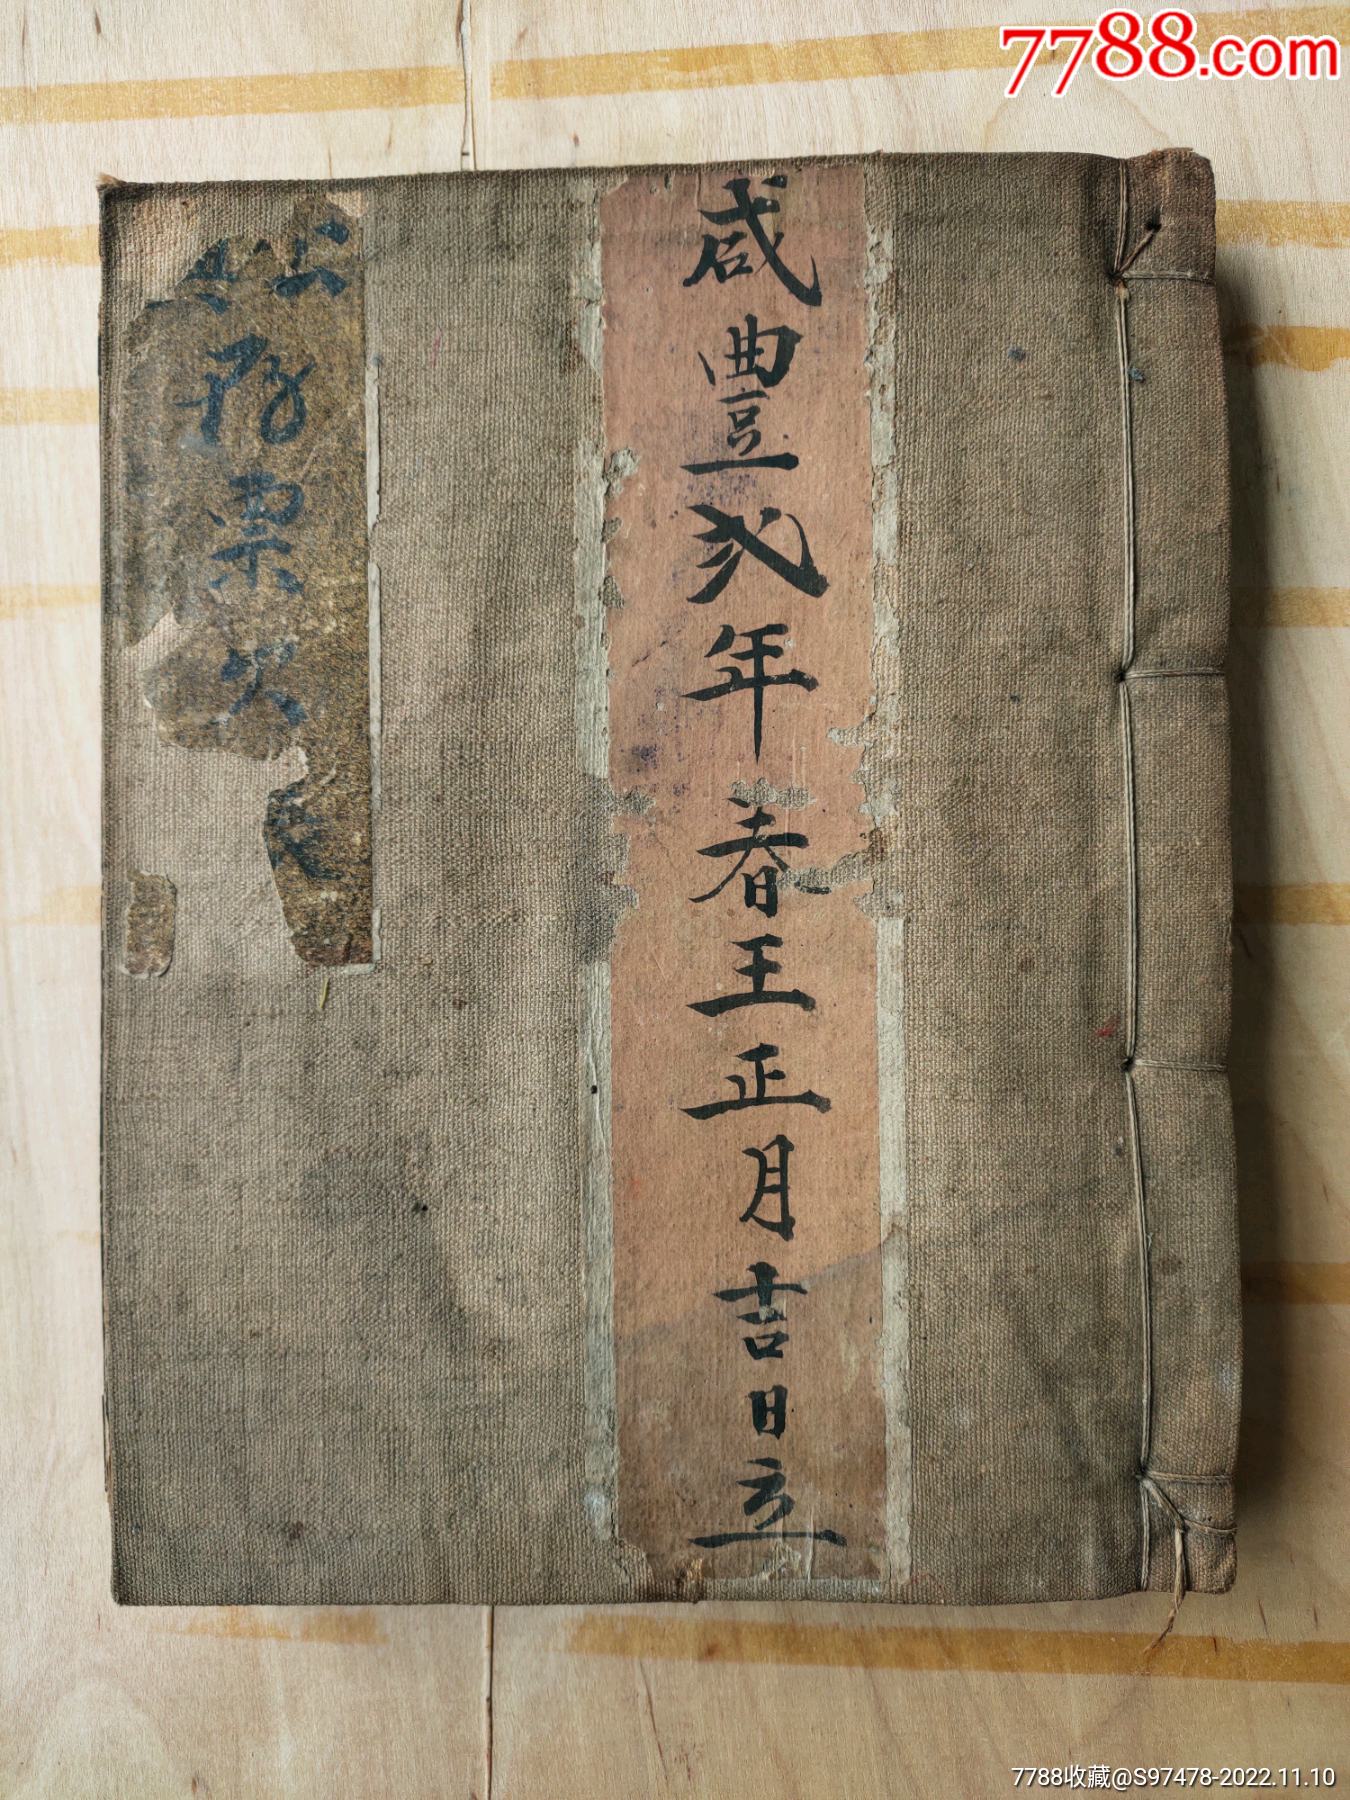 7788.com
咸豐弍年春王正月吉日立
存票欠
7788收藏@S97478-2022.11.10